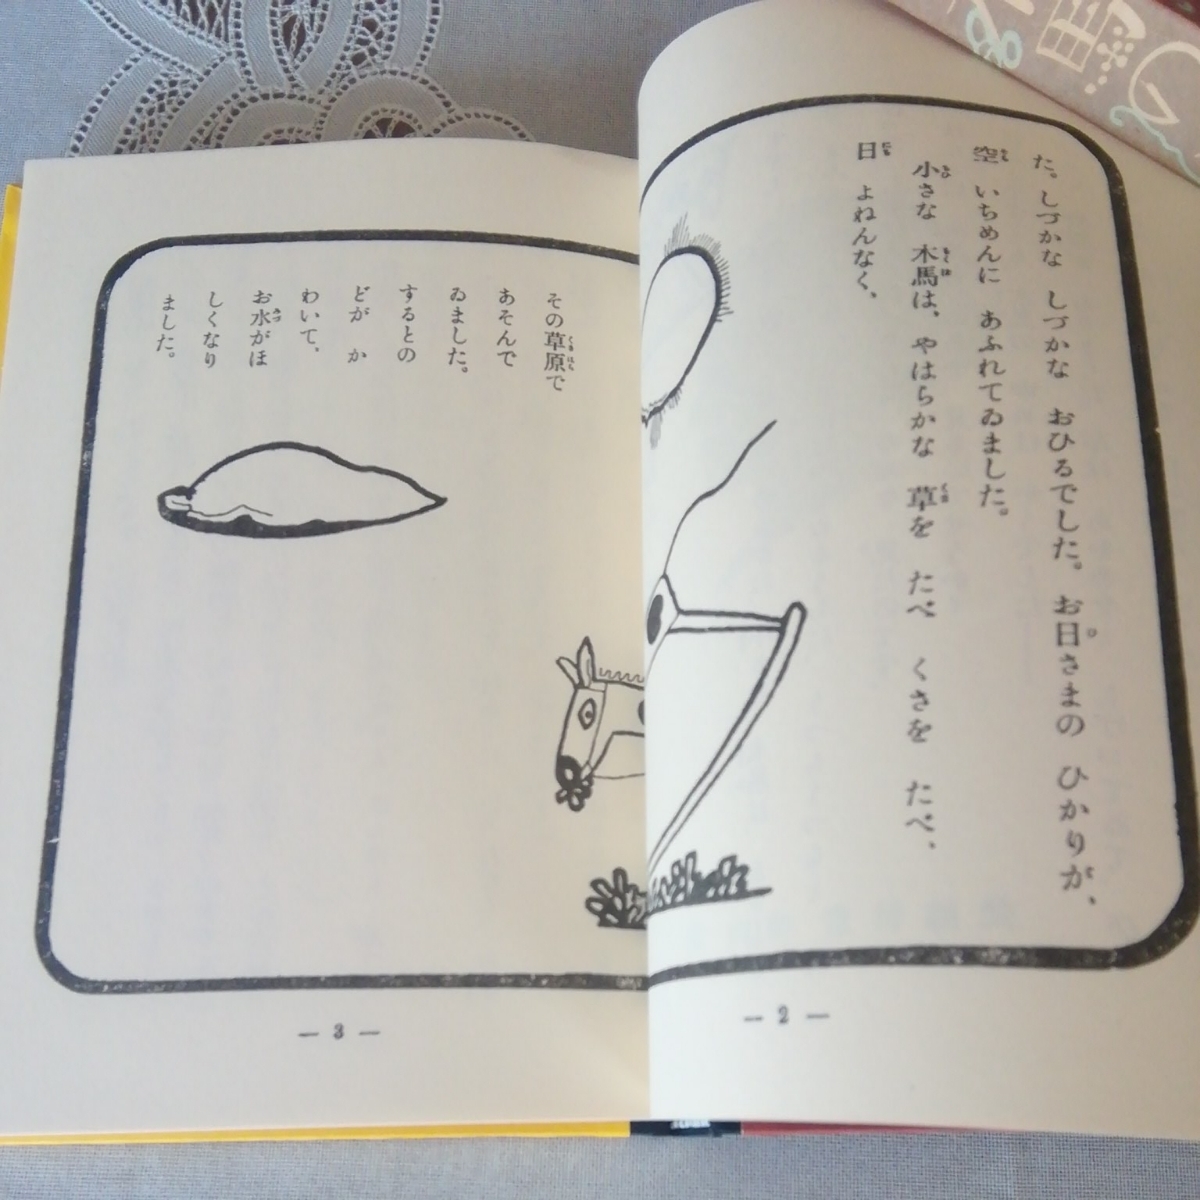 た。しづかな しづかな おひるでした。お日さまの ひかりが、
空 いちめんに あふれてゐました。
小さな 木馬は、やはらかな 草を たべ くさを たべ、
日 よねんなく、
— 2 —
その草原で
あそんで
ゐました。
するとの
どが か
わいて、
お水がほ
しくなり
ました。
— 3 —